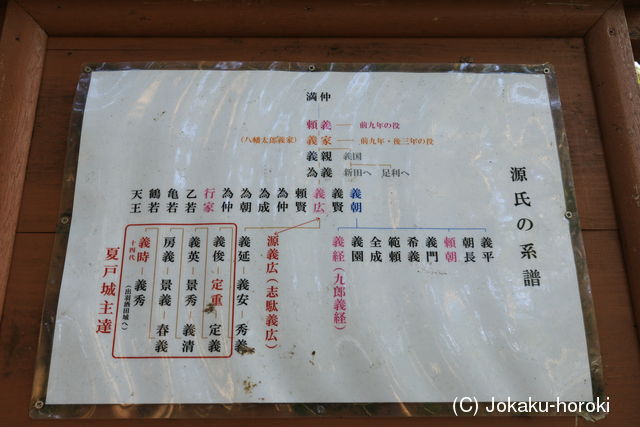 源氏の系譜
満仲
頼義 ── 前九年の役
(八幡太郎義家) 義家 ── 前九年・後三年の役
義親 義国
為義 新田へ 足利へ
義朝
義賢
義広
頼賢
為仲
為成
為朝
為仲
行家
乙若
亀若
鶴若
天王
義平
朝長
頼朝
義門
希義
範頼
全成
義園
義経(九郎義経)
源義広(志駄義広)
義延─義安─秀義
義俊─定重─定義
義英─景秀─義清
房義─景義─春義
十四代
義時─義秀
(出羽酒田城へ)
夏戸城主達
(C) Jokaku-horoki